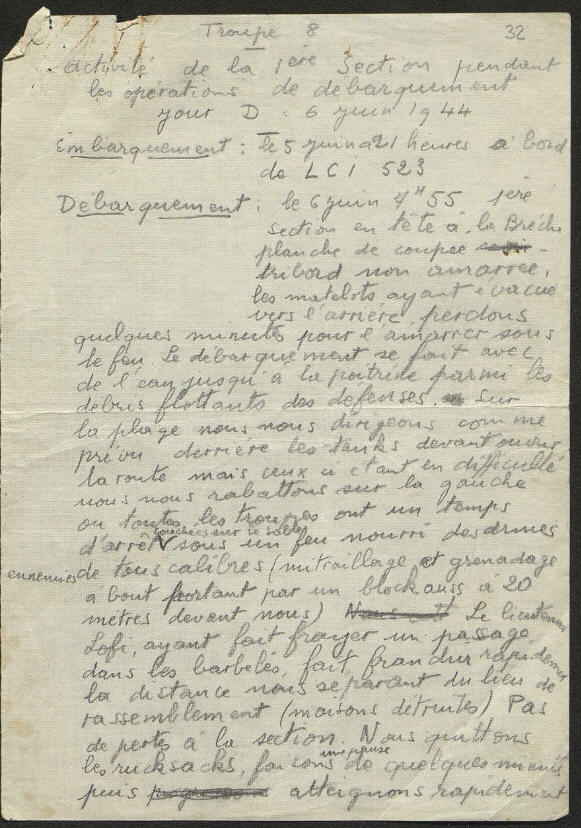 Troupe 8 32
activité de la 1ère Section pendant
les opérations de débarquement
jour D : 6 juin 1944
Embarquement : le 5 juin a 21 heures à bord
de LCI 523
Débarquement : le 6 juin 7H55 1ère
section en tête à la Brèche
planche de coupée
tribord non amarrée,
les matelots ayant évacué
vers l'arrière, perdons
quelques minutes pour l'amarrer sous
le feu. Le débarquement se fait avec
de l'eau jusqu'à la poitrine parmi les
débris flottants des défenses. Sur
la plage nous nous dirigeons comme
prévu derrière les tanks devant ouvrir
la route mais ceux ci étant en difficulté
nous nous rabattons sur la gauche
ou toutes les troupes ont un temps
couchées sur le sable
d'arrêt V sous un feu nourri des armes
ennemies de tous calibres (mitraillage et grenadage
a bout portant par un blockauss à 20
mètres devant nous) Nous Le lieutenant
Lofi, ayant fait frayer un passage
dans les barbelés, fait franchir rapidement
la distance nous séparant du lieu de
rassemblement (maisons détruites) Pas
de pertes à la section. Nous quittons
une pause
les rucksacks, faisons de quelques minutes
puis atteignons rapidement